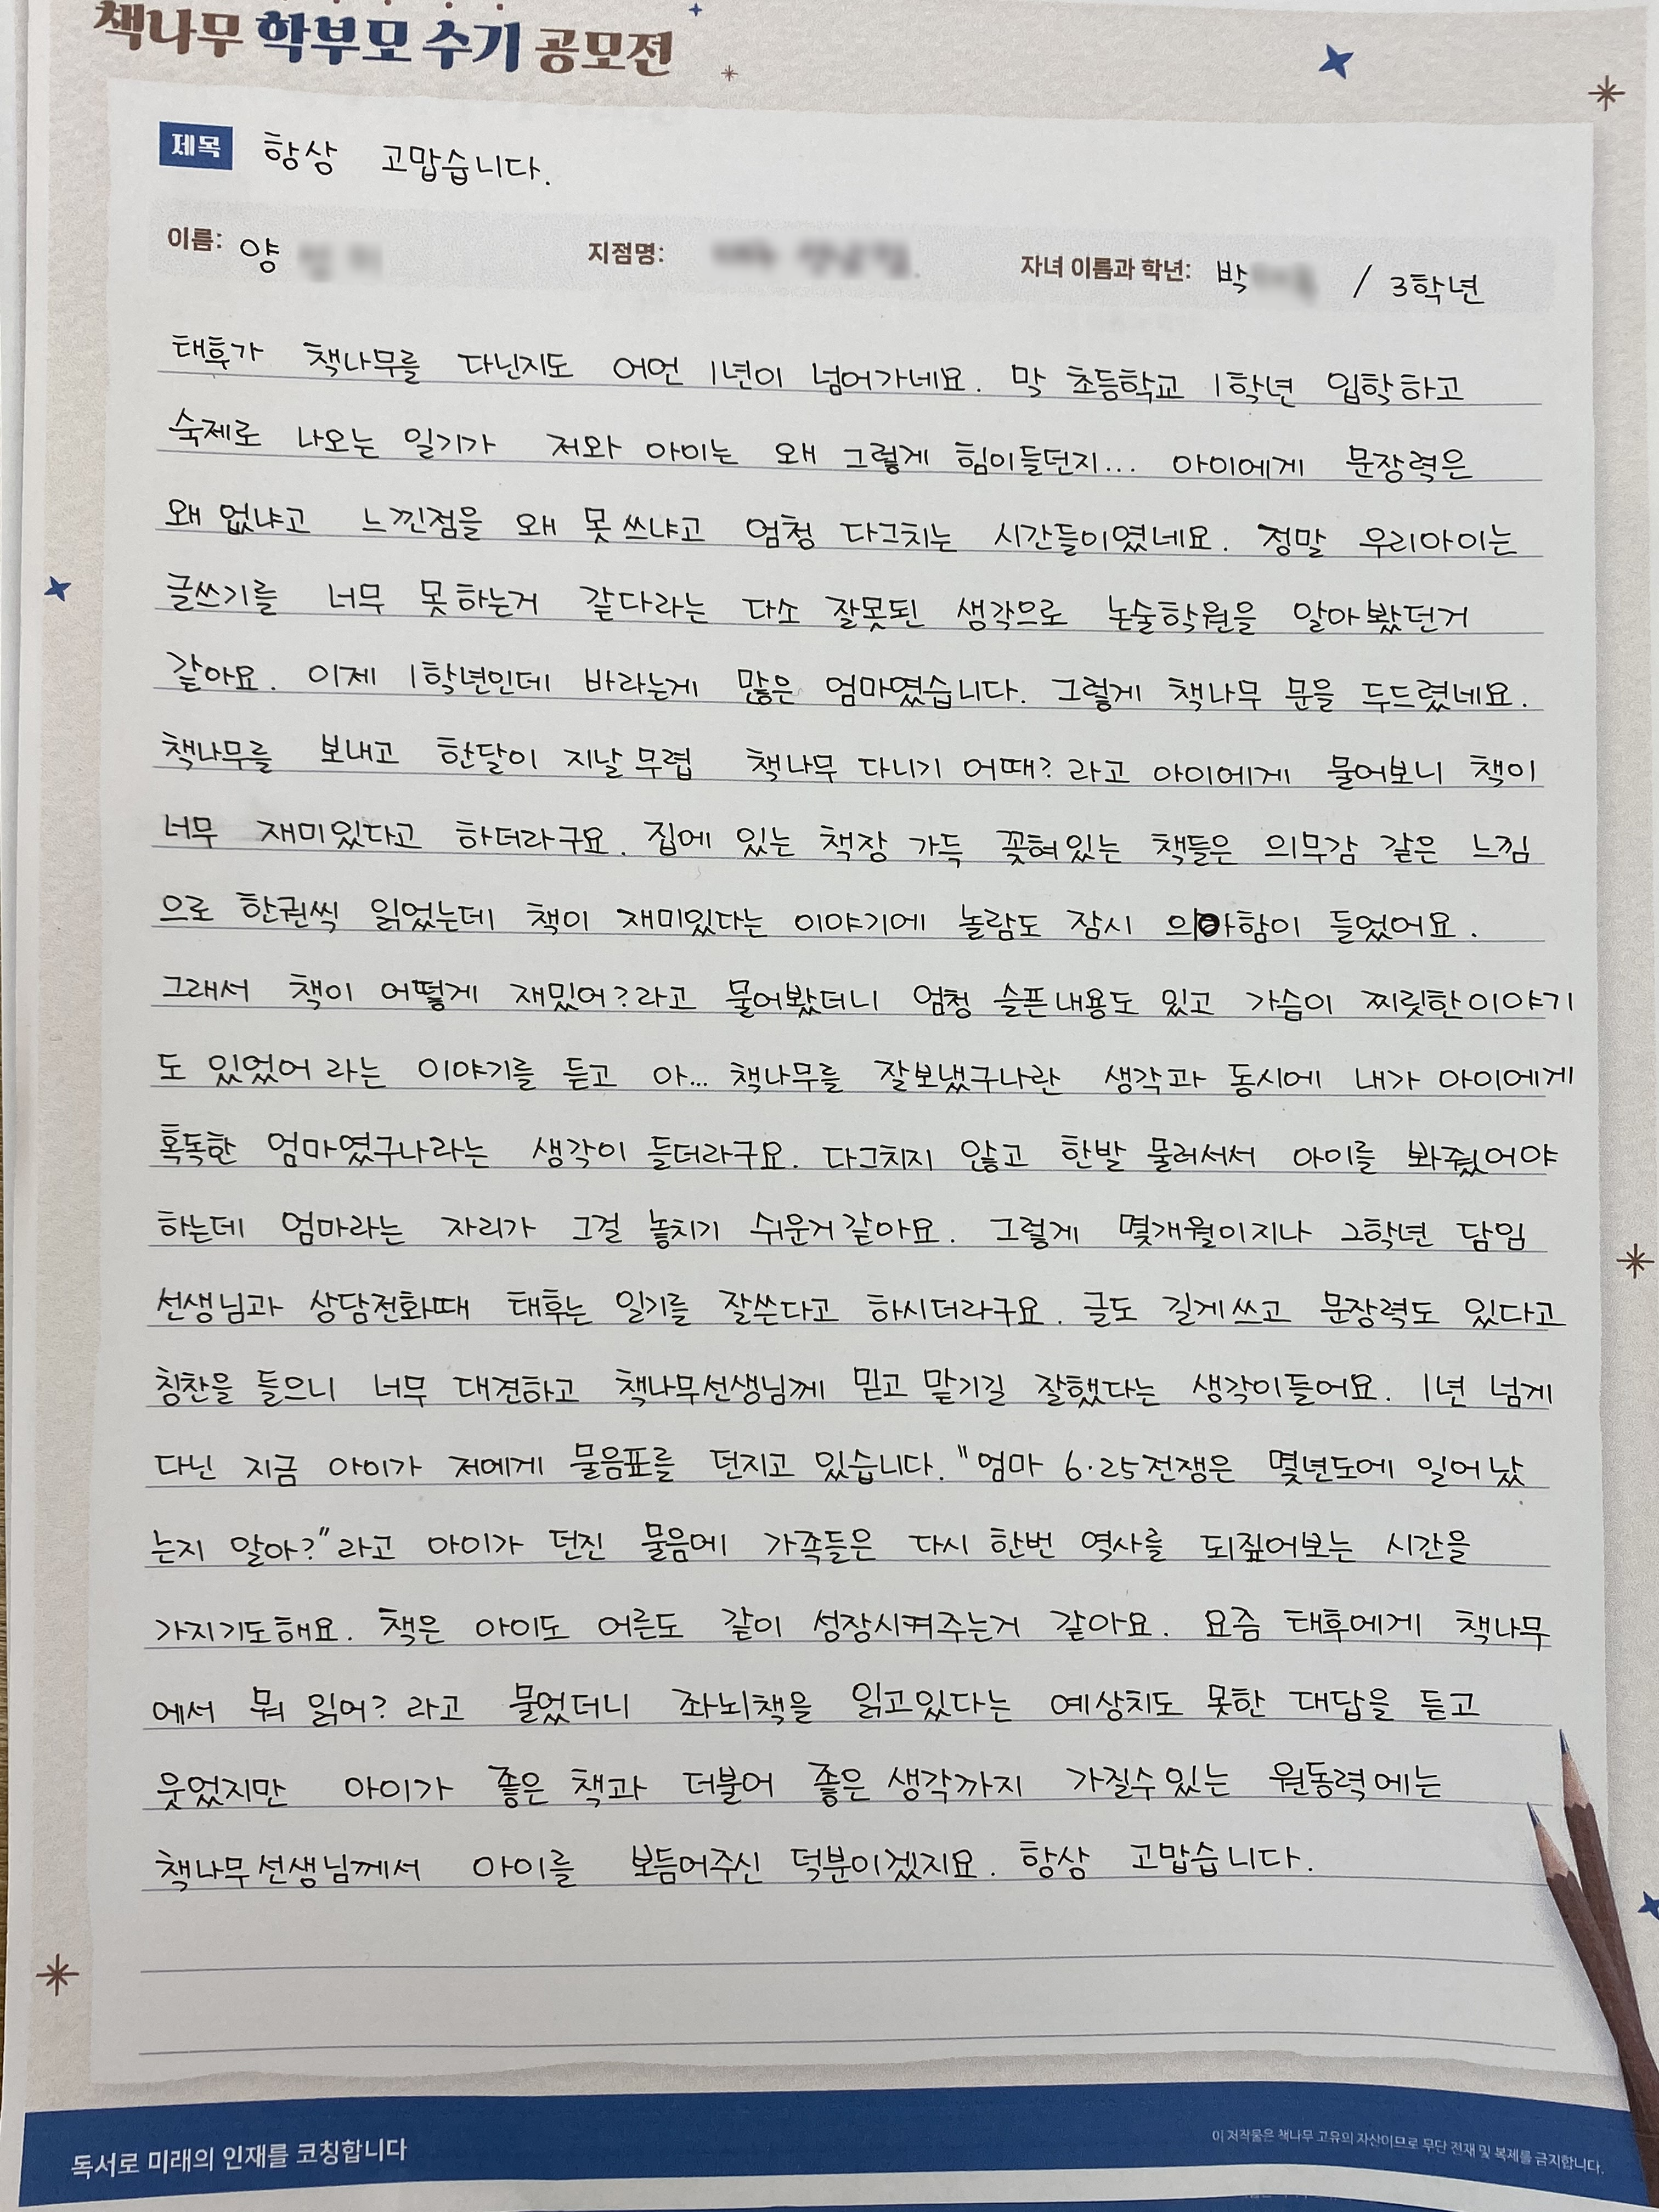 책나무 학부모 수기 공모전
제목 항상 고맙습니다.
이름: 양 지점명: 자녀 이름과 학년: 박 / 3학년
태후가 책나무를 다닌지도 어언 1년이 넘어가네요. 막 초등학교 1학년 입학하고
숙제로 나오는 일기가 저와 아이는 왜 그렇게 힘이들던지... 아이에게 문장력은
왜 없냐고 느낀점을 왜 못 쓰냐고 엄청 다그치는 시간들이였네요. 정말 우리아이는
글쓰기를 너무 못하는거 같다라는 다소 잘못된 생각으로 논술학원을 알아봤던거
같아요. 이제 1학년인데 바라는게 많은 엄마였습니다. 그렇게 책나무 문을 두드렸네요.
책나무를 보내고 한달이 지날무렵 책나무 다니기 어때? 라고 아이에게 물어보니 책이
너무 재미있다고 하더라구요. 집에 있는 책장 가득 꽂혀있는 책들은 의무감 같은 느낌
으로 한권씩 읽었는데 책이 재미있다는 이야기에 놀람도 잠시 의아함이 들었어요.
그래서 책이 어떻게 재밌어?라고 물어봤더니 엄청 슬픈내용도 있고 가슴이 찌릿한이야기
도 있었어 라는 이야기를 듣고 아... 책나무를 잘보냈구나란 생각과 동시에 내가 아이에게
혹독한 엄마였구나라는 생각이 들더라구요. 다그치지 않고 한발 물러서서 아이를 봐줬어야
하는데 엄마라는 자리가 그걸 놓치기 쉬운거같아요. 그렇게 몇개월이지나 2학년 담임
선생님과 상담전화때 태후는 일기를 잘쓴다고 하시더라구요. 글도 길게쓰고 문장력도 있다고
칭찬을 들으니 너무 대견하고 책나무선생님께 믿고 맡기길 잘했다는 생각이들어요. 1년 넘게
다닌 지금 아이가 저에게 물음표를 던지고 있습니다. "엄마 6·25전쟁은 몇년도에 일어났
는지 알아?"라고 아이가 던진 물음에 가족들은 다시 한번 역사를 되짚어보는 시간을
가지기도해요. 책은 아이도 어른도 같이 성장시켜주는거 같아요. 요즘 태후에게 책나무
에서 뭐 읽어? 라고 물었더니 좌뇌책을 읽고있다는 예상치도 못한 대답을 듣고
웃었지만 아이가 좋은 책과 더불어 좋은 생각까지 가질수있는 원동력에는
책나무선생님께서 아이를 보듬어주신 덕분이겠지요. 항상 고맙습니다.
독서로 미래의 인재를 코칭합니다
이 저작물은 책나무 고유의 자산이므로 무단 전재 및 복제를 금지합니다.